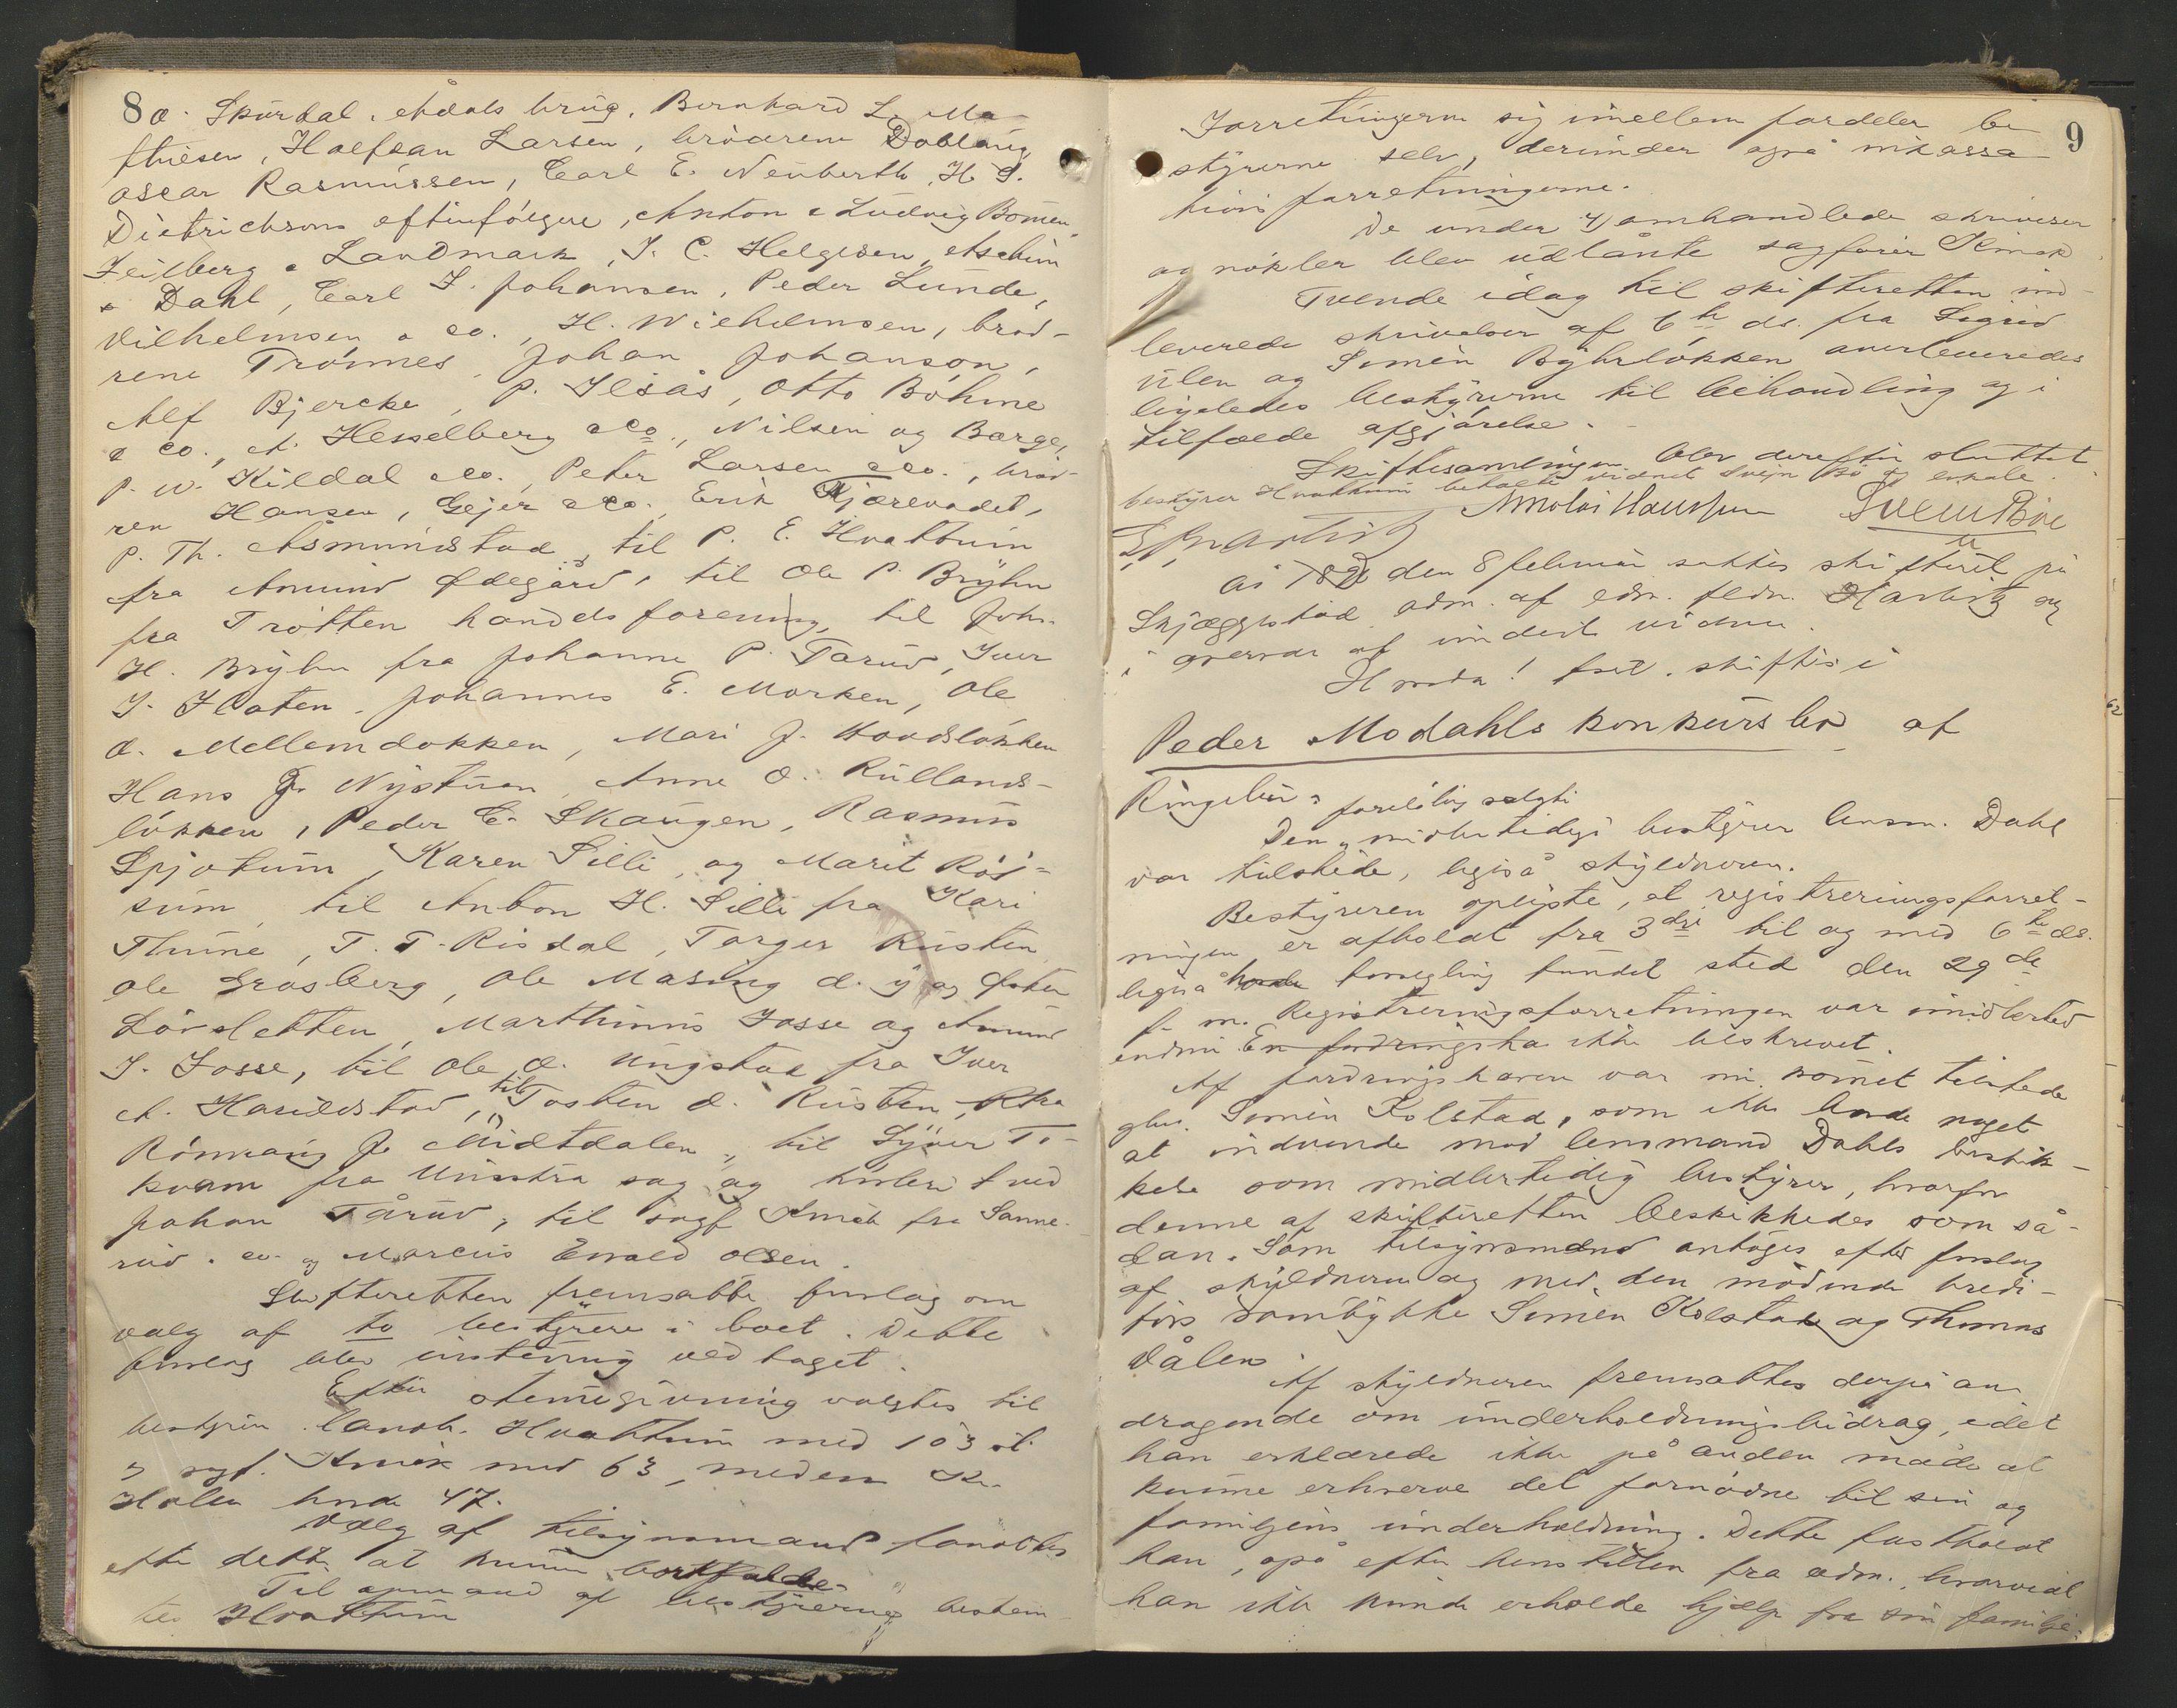 8
O. Skurdal, Ådals brug, Bernhard L. Ma-
thiesen, Halfdan Larsen, brødrene Dobloug,
Oscar Rasmussen, Carl E. Neuberth, H. S.
Dietrichsons efterfølgere, Anton & Ludvig Bomen,
Feilberg & Landmark, J. C. Helgesen,
& Dahl, Carl J. Johansen, Peder Lunde,
Vilhelmsen & co., H. Wilhelmsen, brød-
rene Trönnes, Johan Johanson,
Alf Bjercke, P. Ilsås, Otto Böhme
& co., A. Hesselberg & Co., Nilsen og Borge,
P. W. Kildal & co., Peter Larsen & co., brød-
ren Hansen, Gejer & co., Erik Kjørevadet,
P. Th. Åsmundstad, til P. E. Hvattum
fra Amund Ødegård, til Ole P. Bryhn
fra Trötten handelsforening, til Johs.
H. Bryhn fra Johanne P. Tarud, Iver
J. Floten, Johannes E. Morken, Ole
O. Mellemdokken, Mari J. Hovdsløkken
Hans J. Nystuen, Anne O. Rullands-
løkken, Peder E. Skaugen, Rasmus
Spjotum, Karen Lilli, og Marit Røj-
sum, til Anton H. Lilli fra Kari
Thune, T. T. Risdal, Torger Rusten,
Ole Grosberg, Ole Masing d. y. og
Løvsletten, Marthinus Fosse og Amund
J. Fosse, til Ole O. Ungstad fra Iver
A. Harildstad, til Tosten O. Rusten, fra
Rønnaug J. Midtdalen, til Syver To-
kvam fra Vinstra sag og høvleri ved
Johan Tårud, til sagf Kmok fra Sanne-
rud & co. og Marcus Ewald Olsen.
Skifteretten fremsatte forslag om
valg af to bestyrere i boet. Dette
forslag blev enstemmig vedtaget.
Efter stemmegivning valgtes til
bestyrere landh. Hvattum med 103 st.
og sagf. Kmok med 63, medens
Holen havde 47.
Valg af tilsynsmand fandtes
efter dette at kunne bortfalde.
Til opmand af bestyrerne bestem-
tes Hvattum
9
Forretningerne sig imellem fordeler be-
styrerne selv, derunder også inkassa-
tionsforretningerne.
De under 4) omhandlede skrivelser
og nøkler blev udlånte sagfører Kmok.
Tvende idag til skifteretten ind-
leverede skrivelser af 6te ds. fra Sigrid
Ulen og Simen Byhrløkken overleveredes
ligeledes bestyrerne til behandling og i
tilfælde afgjørelse.
Skiftesamlingen blev derefter sluttet.
bestyrer Hvattum
Nicolai Hansen Svein Böe
den 8 februar sattes skifteret på
Skjæggestad adm. af edn. fldm. og
i overvær af undert. vidne.
Hvorda! fret. skiftes i
Peder Modahls konkursbo af
Ringebu.
foreløbig valgte
Den midlertidige bestyrer lensm. Dahl
var tilstede, ligeså skyldneren.
Bestyreren oplyste, at registreringsforret-
ningen er afholdt fra 3die til og med 6te ds.
ligesa forsegling fundet sted den 29de
f. m. Registreringsforretningen var imidlertid
endnu En fordringsha ikke beskrevet.
Af fordringshavere var nu kommet tilstede
gbr. Simen Kolstad, som ikke havde noget
at indvende mod lensmand Dahls beskik-
kelse som midlertidig bestyrer, hvorfor
denne af skifteretten beskikkedes som så-
dan. Som tilsynsmænd antoges efter forslag
af skyldneren og med den mødende kredi-
tors samtykke Simen Kolstad og Thomas
Dålen.
Af skyldneren fremsattes derpå an-
dragende om underholdningsbidrag, idet
han erklærede ikke på anden måde at
kunne erhverve det fornødne til sin og
familjens underholdning. Dette fastholdt
han, også efter henstillen fra adm., hvorvidt
han ikke kunde erholde hjælp fra sin familje.